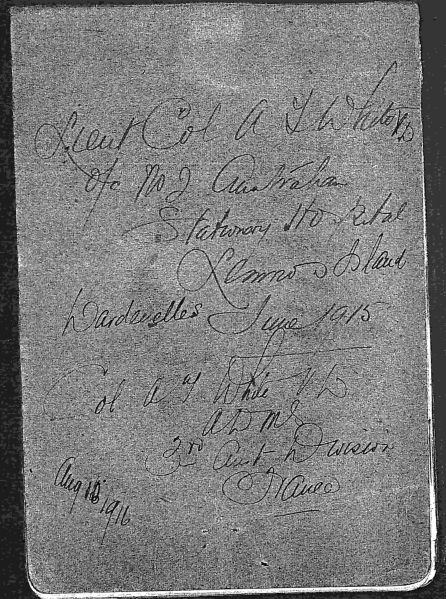 Lieut Col A T White VD
o/c No 2 Australian
Stationary Hospital
Lemnos Island
Dardenelles June 1915
Col A T White VD
ADMS
3rd Aust Division
France
Aug 1916